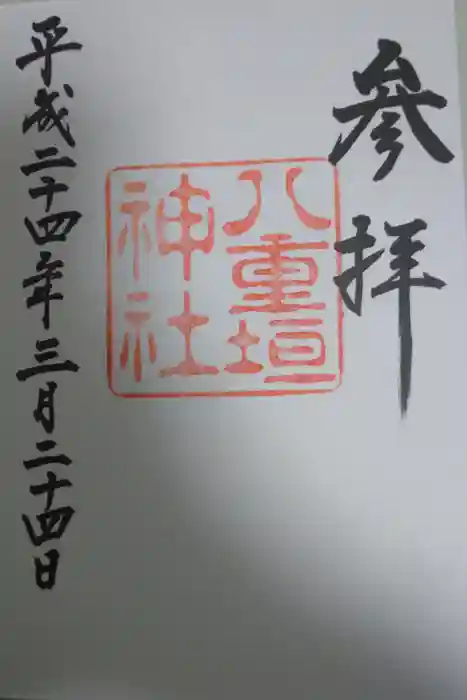 參拝
八重垣
神社
平成二十四年三月二十四日